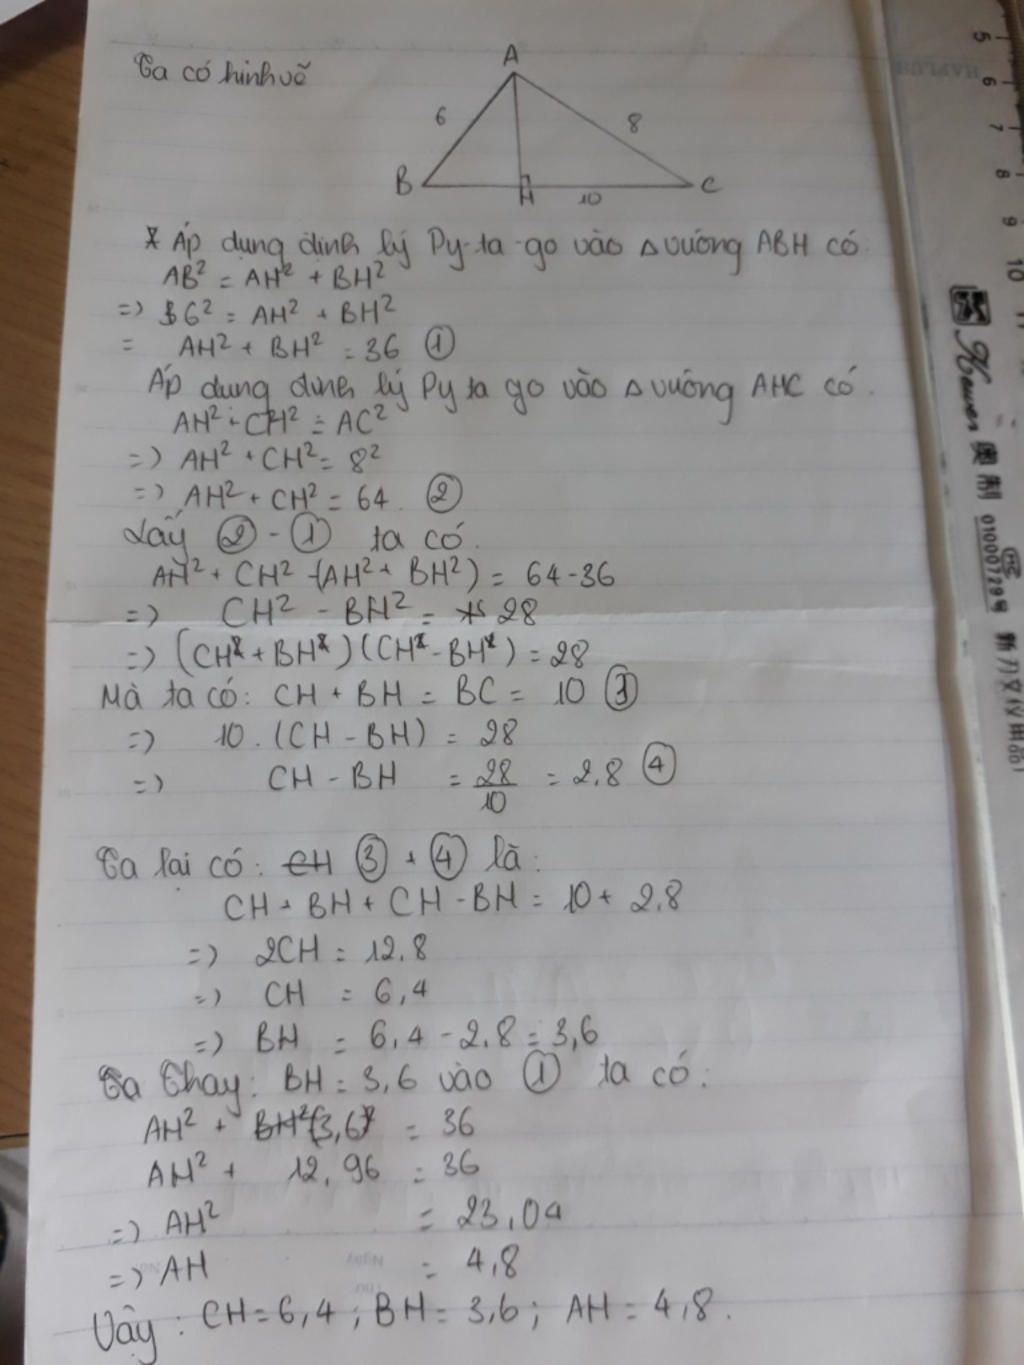 Ta có hình vẽ
A
6
8
B
H
10
C
* Áp dụng định lý Py-ta-go vào Δ vuông ABH có:
AB² = AH² + BH²
=> 6² = AH² + BH²
= AH² + BH² = 36 ①
Áp dụng định lý Py ta go vào Δ vuông AHC có.
AH² + CH² = AC²
=> AH² + CH² = 8²
=> AH² + CH² = 64. ②
Lấy ② - ① ta có.
AH² + CH² -(AH² + BH²) = 64-36
=> CH² - BH² = 28
=> (CH + BH)(CH - BH) = 28
Mà ta có: CH + BH = BC = 10 ③
=> 10.(CH - BH) = 28
=> CH - BH = 28/10 = 2,8 ④
Ta lại có: ③ + ④ là:
CH + BH + CH - BH = 10 + 2,8
=> 2CH = 12,8
=> CH = 6,4
=> BH = 6,4 - 2,8 = 3,6
Ta thay: BH = 3,6 vào ① ta có:
AH² + (3,6)² = 36
AH² + 12,96 = 36
=> AH² = 23,04
=> AH = 4,8
Vậy: CH = 6,4; BH = 3,6; AH = 4,8.
5
6
7
8
9
10
11
HAPLUS
奥制
01000729号